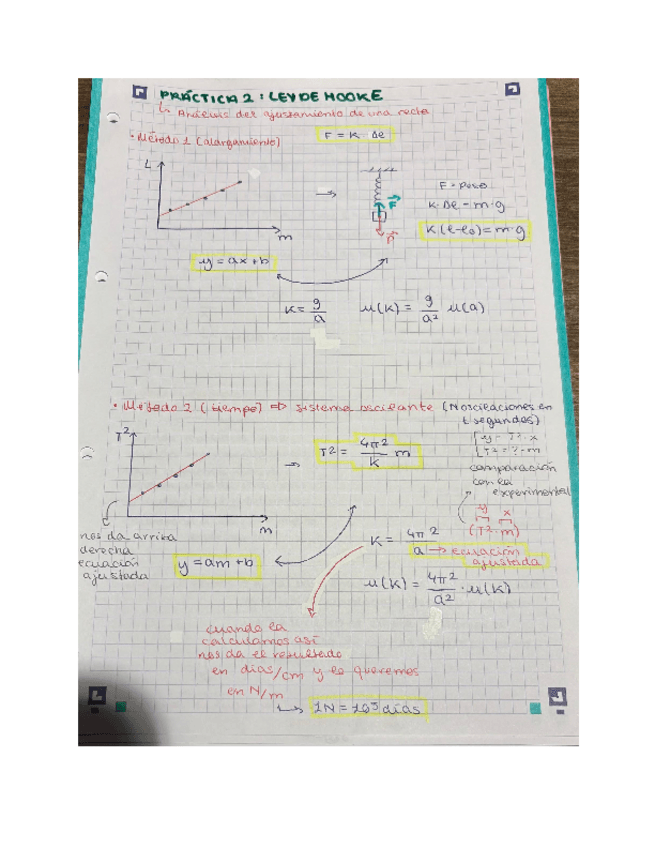 PRÁCTICA 2: LEY DE HOOKE
↳ Análisis del ajustamiento de una recta
• Método 1 (alargamiento)
F = K · Δe
L
m
F
P
F = peso
K·Δe = m·g
K(e-e₀) = m·g
y = ax+b
K = g/a
u(K) = g/a² u(a)
• Método 2 (tiempo) ⇒ sistema oscilante (N oscilaciones en
t segundos)
T²
m
T² = 4π²/K m
y = ? · x
T² = ? · m
comparación
con la
experimental
y x
(T² · m)
nos da arriba
derecha
ecuación
ajustada
y = am+b
K = 4π²/a → ecuación
ajustada
u(K) = 4π²/a² · u(K)
cuando la
calculamos así
nos da el resultado
en dias/cm y lo queremos
en N/m
↳ 1N = 10⁵ dias